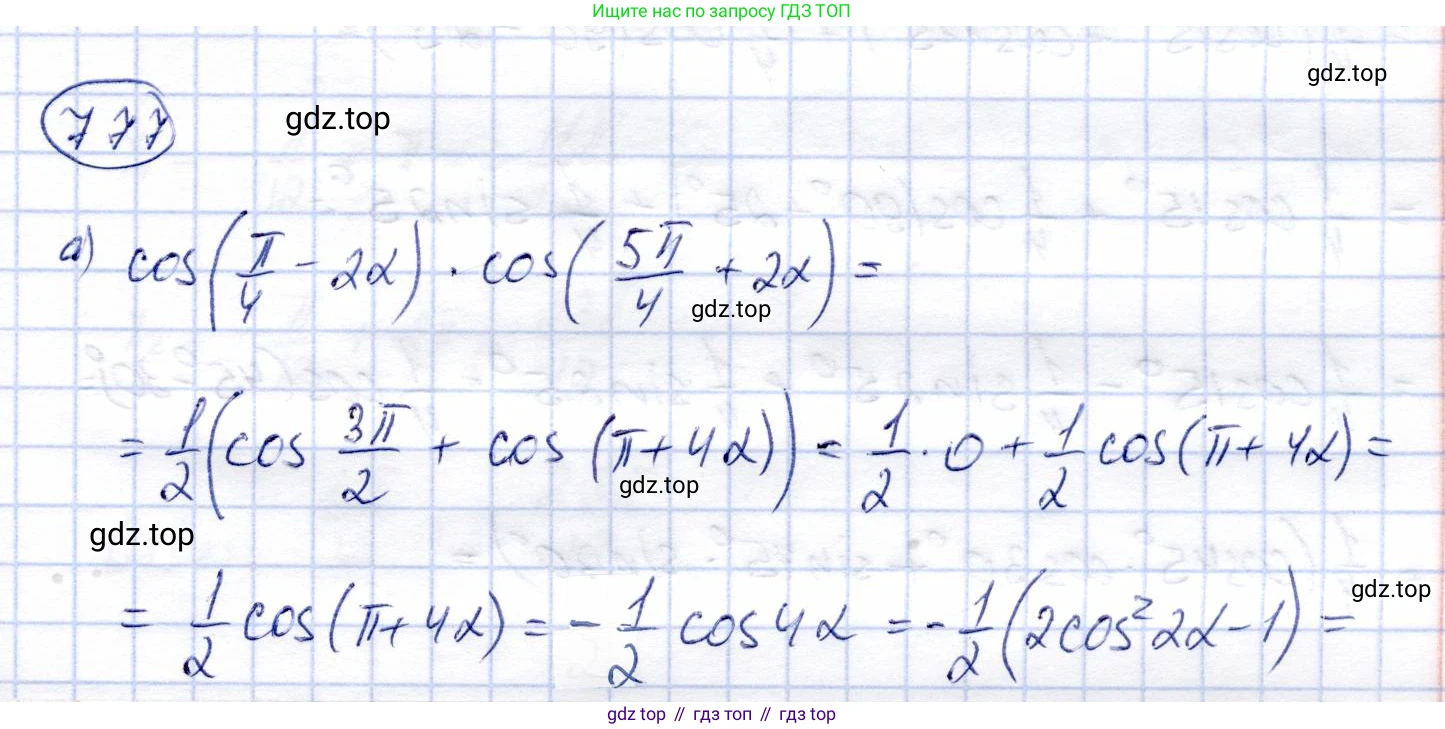 Ищите нас по запросу ГДЗ ТОП
gdz.top
777
gdz.top
а) cos(π/4 - 2α) · cos(5π/4 + 2α) =
gdz.top
= 1/2(cos 3π/2 + cos (π + 4α)) = 1/2 · 0 + 1/2 cos(π + 4α) =
gdz.top
gdz.top
= 1/2 cos(π + 4α) = - 1/2 cos 4α = - 1/2(2cos² 2α - 1) =
gdz.top
gdz top // гдз топ // гдз top